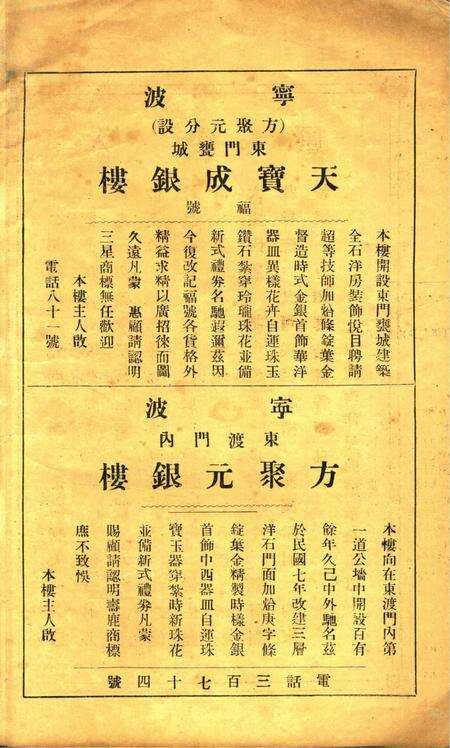 寧波
(方聚元分設)
東門甕城
天寶成銀樓
福號
本樓開設東門甕城建築
全石洋房裝飾悅目聘請
超等技師加焰條錠葉金
督造時式金銀首飾華洋
器皿異樣花卉自運珠玉
鑽石紮穿玲瓏珠花並備
新式禮劵名馳遐邇茲因
今復改記福號各貨格外
精益求精以廣招徠而圖
久遠凡蒙 惠顧請認明
三星商標無任歡迎
本樓主人啟
電話八十一號
寧波
東渡門內
方聚元銀樓
本樓向在東渡門內第
一道公墻中開設百有
餘年久已中外馳名茲
於民國七年改建三層
洋石門面加焰庚字條
錠葉金精製時樣金銀
首飾中西器皿自運珠
寶玉器穿紮時新珠花
並備新式禮劵凡蒙
賜顧請認明壽鹿商標
庶不致悞
本樓主人啟
電話三百七十四號